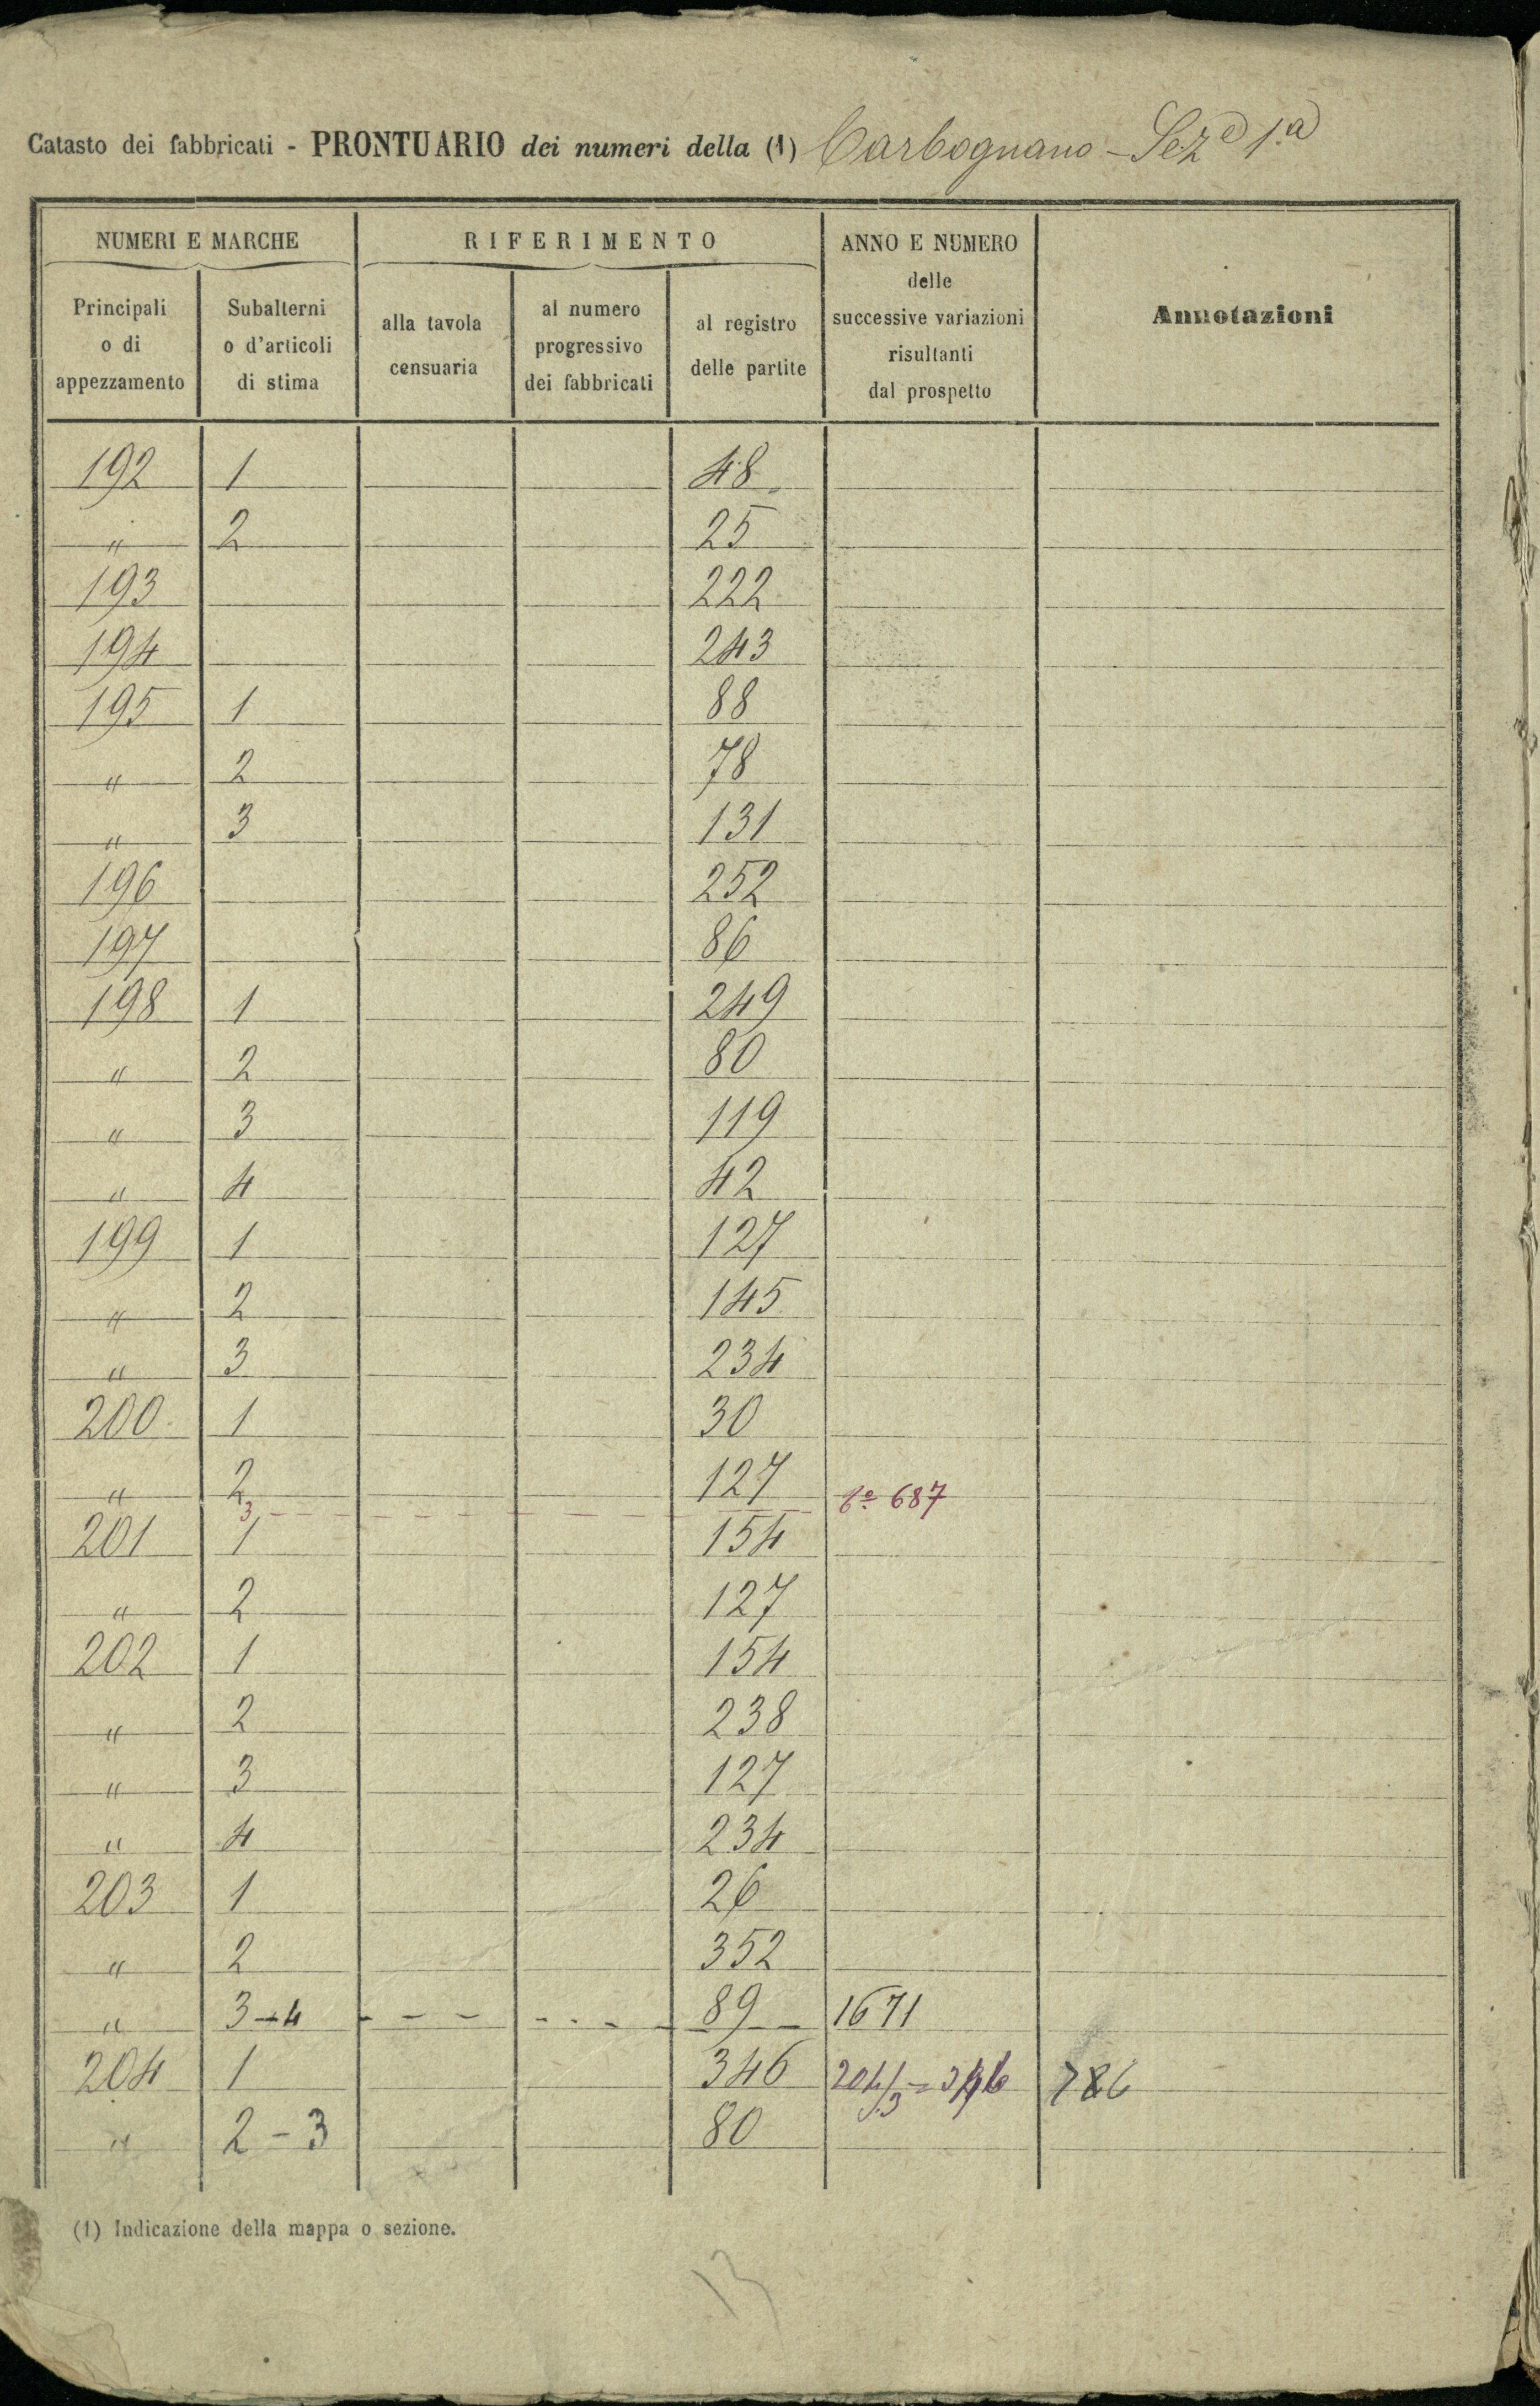 Catasto dei fabbricati - PRONTUARIO dei numeri della (1) Carbognano - Sez.e 1.a
NUMERI E MARCHE
RIFERIMENTO
ANNO E NUMERO
delle
successive variazioni
risultanti
dal prospetto
Annotazioni
Principali
o di
appezzamento
Subalterni
o d'articoli
di stima
alla tavola
censuaria
al numero
progressivo
dei fabbricati
al registro
delle partite
192 1 48
" 2 25
193 222
194 243
195 1 88
" 2 78
" 3 131
196 252
197 86
198 1 249
" 2 80
" 3 119
" 4 42
199 1 127
" 2 145
" 3 234
200 1 30
" 2 127
3 - - - - - - - - - 687
201 1 154
" 2 127
202 1 154
" 2 238
" 3 127
" 4 234
203 1 26
" 2 352
" 3-4 - - - - - - - 89 - 1671
204 1 346 204/3 = 346 786
" 2-3 80
(1) Indicazione della mappa o sezione.
13